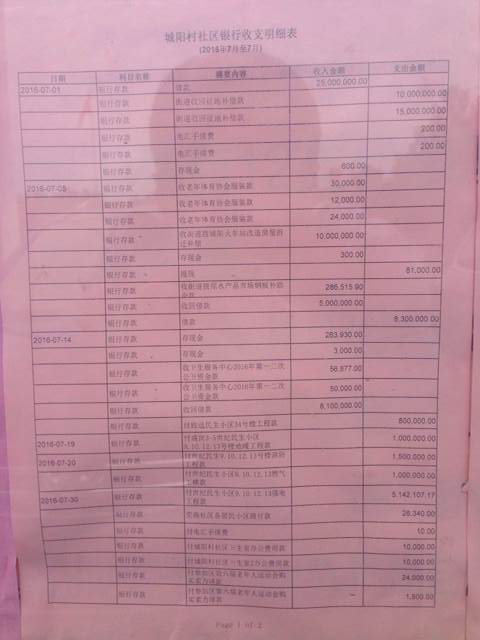 城阳村社区银行收支明细表
(2016年7月至7月)
日期 科目名称 摘要内容 收入金额 支出金额
2016-07-01 银行存款 借款 25,000,000.00
银行存款 街道收回征地补偿款 10,000,000.00
银行存款 街道收回征地补偿款 15,000,000.00
银行存款 电汇手续费 200.00
银行存款 电汇手续费 200.00
银行存款 存现金 600.00
2016-07-05 银行存款 收老年体育协会服装款 30,000.00
银行存款 收老年体育协会服装款 12,000.00
银行存款 收老年体育协会服装款 24,000.00
银行存款 收街道拨城阳火车站改造房屋拆
迁补偿 10,000,000.00
银行存款 存现金 300.00
银行存款 提现 81,000.00
银行存款 收街道拨 水产品市场钢板补助
金款 286,515.90
银行存款 收回借款 5,000,000.00
银行存款 借款 8,300,000.00
2016-07-14 银行存款 存现金 263,930.00
银行存款 存现金 3,000.00
银行存款 收卫生服务中心2016年第一二次
公卫资金款 56,877.00
银行存款 收卫生服务中心2016年第一二次
公卫资金款 50,000.00
银行存款 收回借款 8,100,000.00
银行存款 民生小区34号楼工程款 800,000.00
2016-07-19 银行存款 世纪民生小区
9.10.12.13号楼 工程款 1,000,000.00
2016-07-20 银行存款 付世纪民生9.10.12.13号楼
工程款 1,500,000.00
银行存款 付世纪民生小区9.10.12.13燃气
工程款 1,000,000.00
2016-07-30 银行存款 付世纪民生小区9.10.12.13强电
工程款 5,142,107.17
银行存款 居民小区 付款 26,340.00
银行存款 付电汇手续费 10.00
银行存款 付城阳村社区卫生室办公费用款 10,000.00
银行存款 付城阳村社区 办公费用款 10,000.00
银行存款 付参加区第六届老年人运动会购
买 款 24,000.00
银行存款 付参加区第六届老年人运动会购
买 款 1,800.00
Page 1 of 2